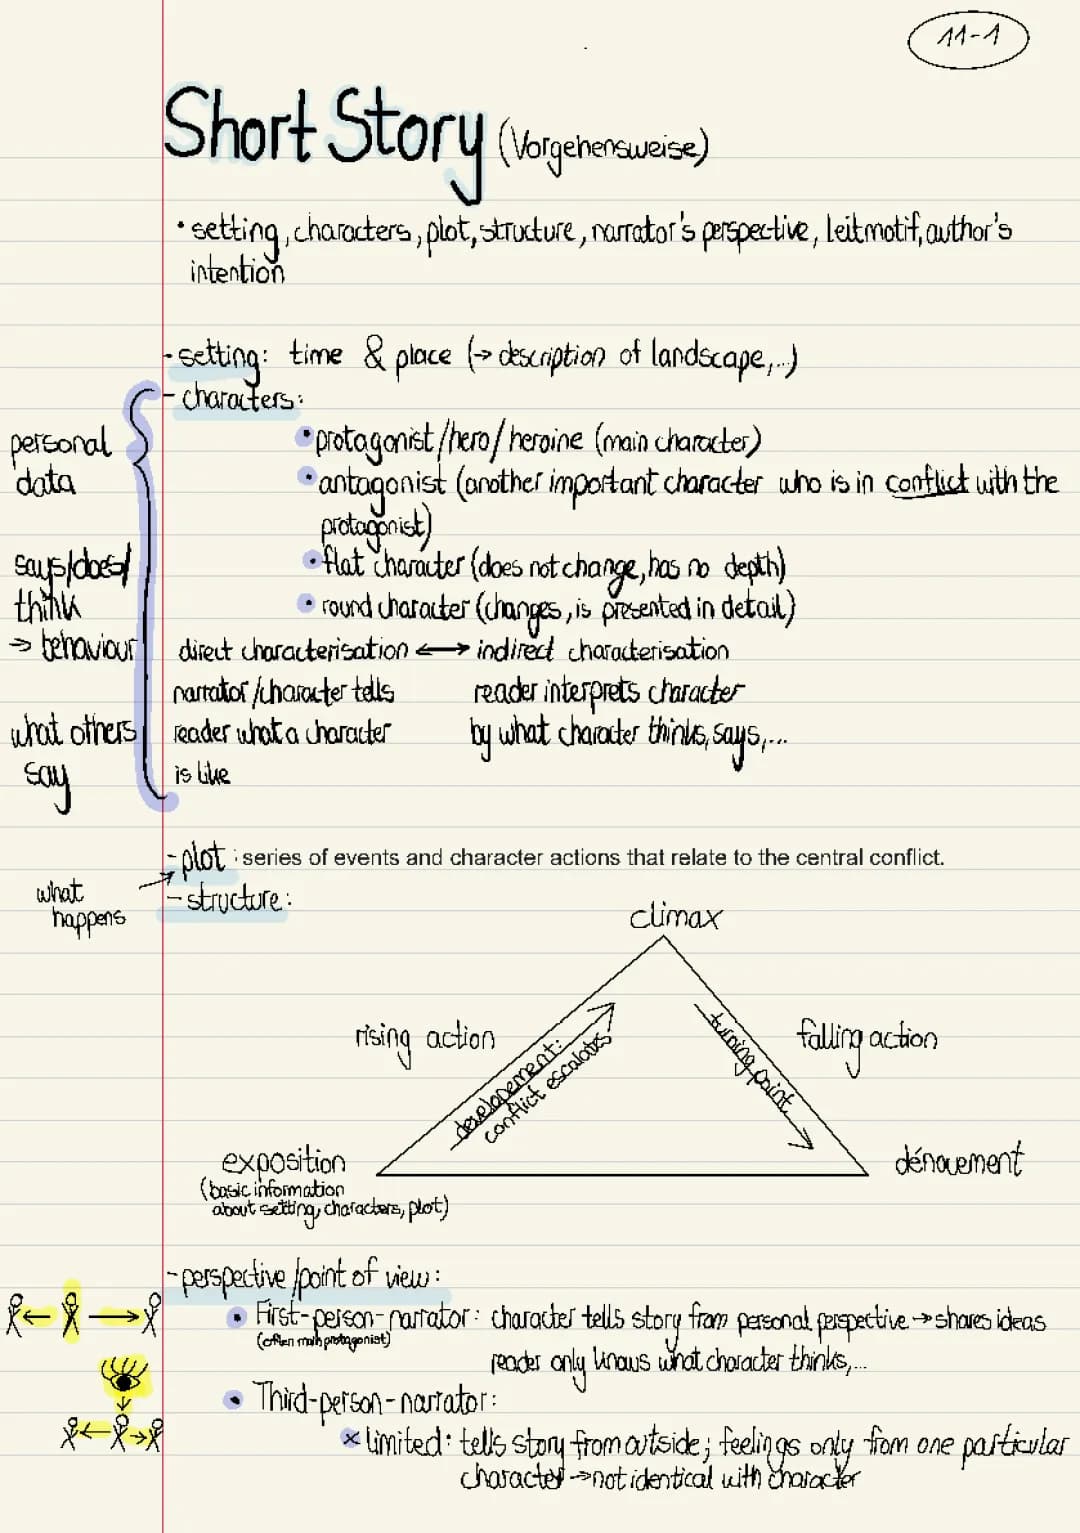 11-1
Short Story (Vorgehensweise)
• setting, characters, plot, structure, narrator's perspective, leitmotif, author's
intention
- setting: time & place (→ description of landscape,...)
- characters:
personal
data
• protagonist/hero/heroine (main character)
• antagonist (another important character who is in conflict with the
protagonist)
says/does/
think
→ behaviour
• flat character (does not change, has no depth)
• round character (changes, is presented in detail)
direct characterisation ⟷ indirect characterisation
narrator/character tells
reader what a character
is like
reader interprets character
by what character thinks, says,...
what others
say
- plot: series of events and character actions that relate to the central conflict.
what
happens
- structure:
climax
rising action
developement:
conflict escalates
turning point
falling action
exposition
(basic information
about setting, characters, plot)
dénouement
- perspective/point of view:
• First-person-narrator: character tells story from personal perspective → shares ideas
(often main protagonist)
reader only knows what character thinks,...
• Third-person-narrator:
× limited: tells story from outside; feelings only from one particular
character → not identical with character